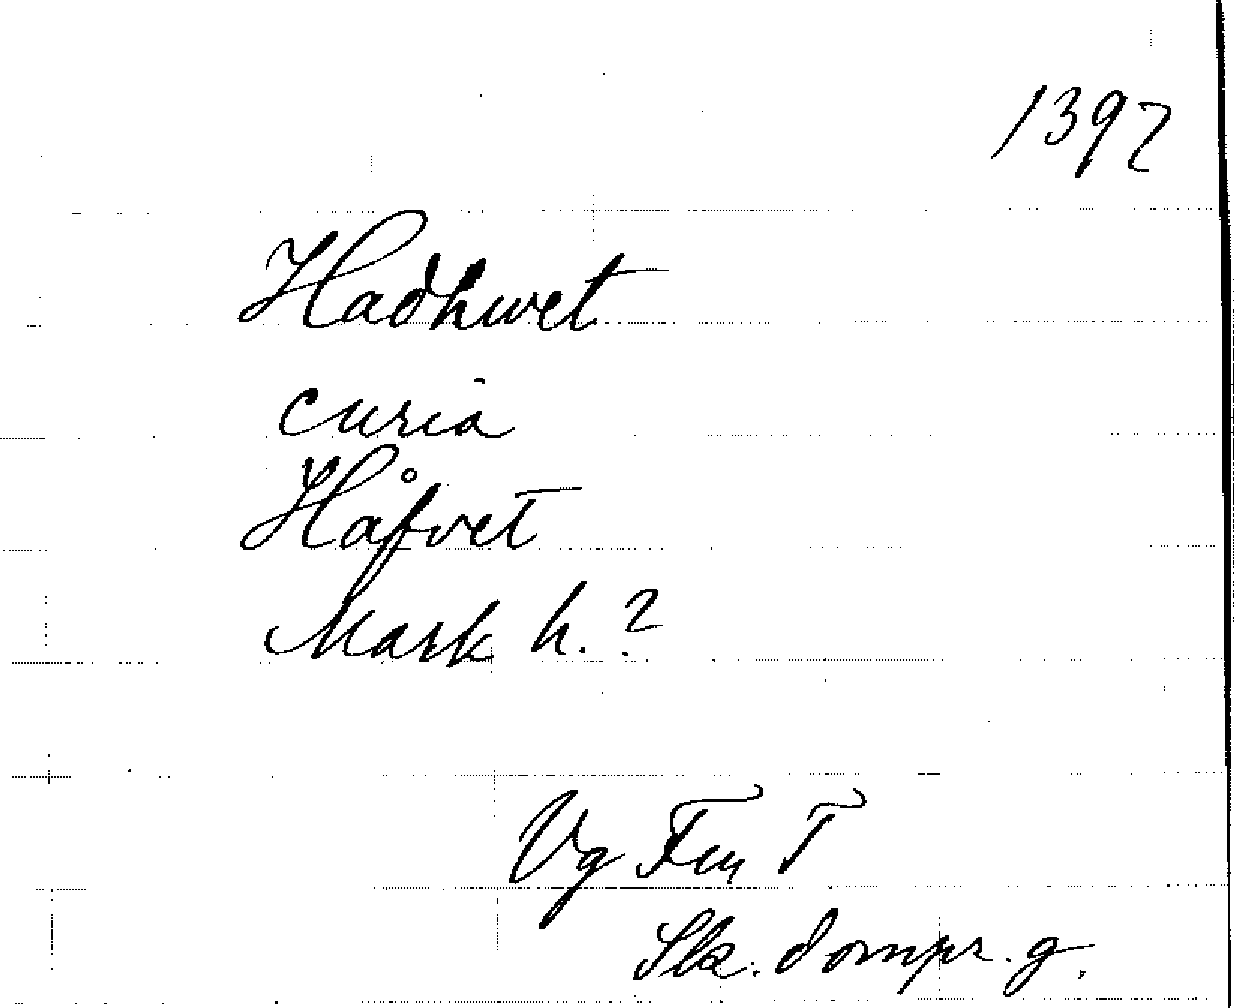 1397
Hadhwet
curia
Håfvet
Mark h.?
Vg Fm T
Sk. dompr. g.